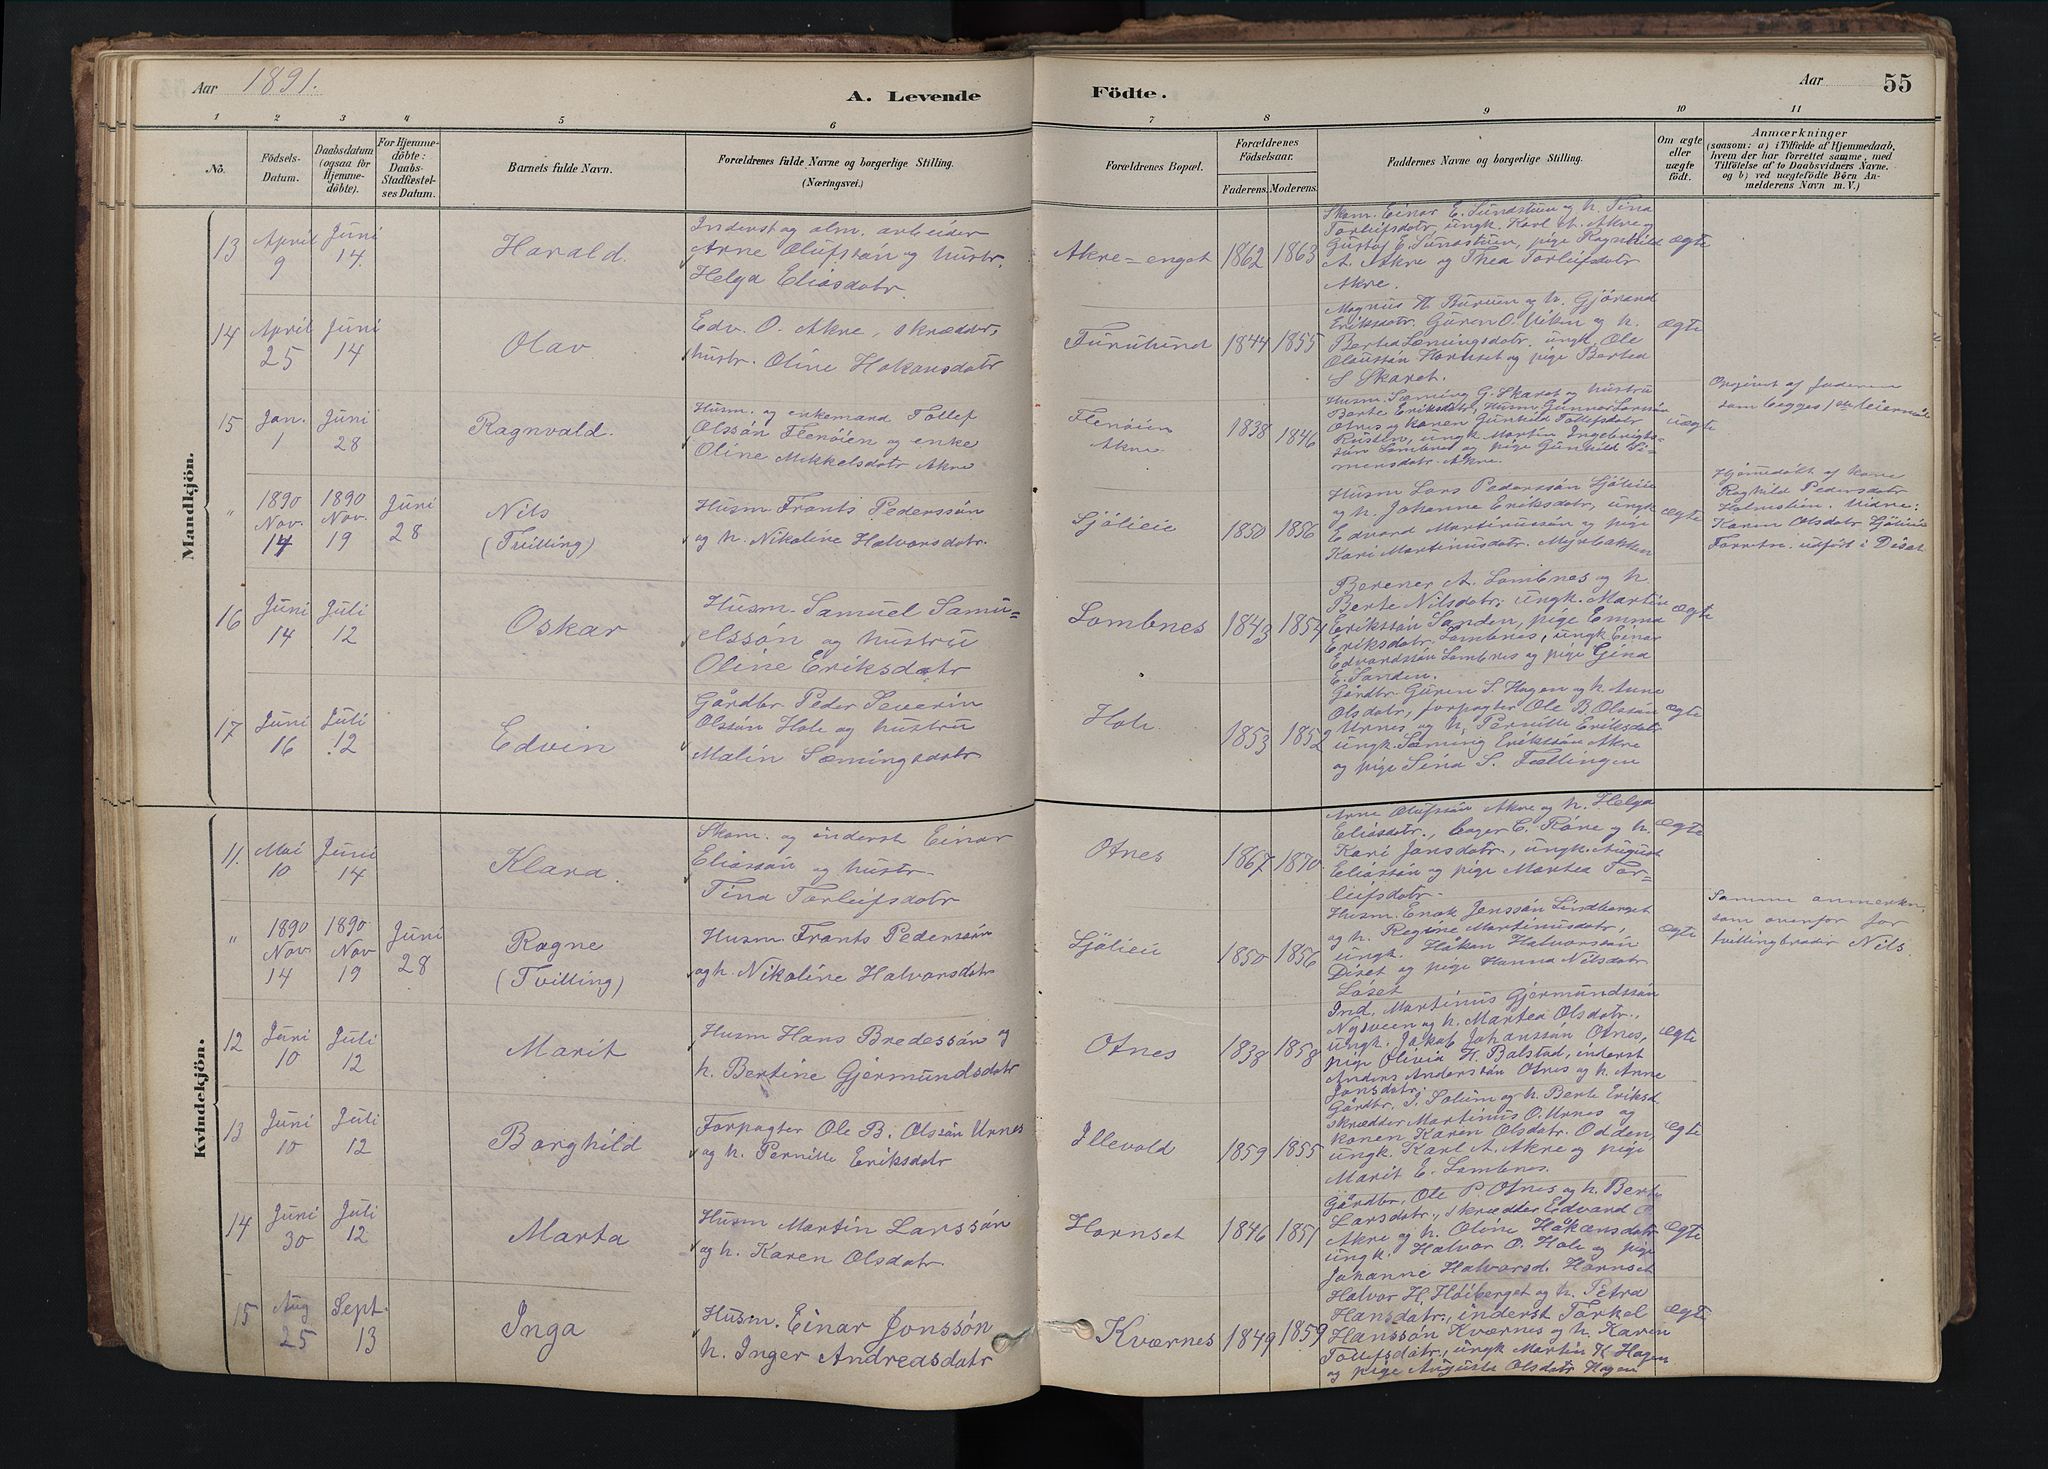 Aar 1891. A. Levende Födte. Aar 55
1 2 3 4 5 6 7 8 9 10 11
No. Födsels-Datum. Daabsdatum (ogsaa for Hjemmedöbte). For Hjemmedöbte: Daabs-Stadfæstelses Datum. Barnets fulde Navn. Forældrenes fulde Navne og borgerlige Stilling. (Næringsvei.) Forældrenes Bopæl. Forældrenes Födselsaar. Faderens. Moderens. Faddernes Navne og borgerlige Stilling. Om ægte eller uægte födt. Anmærkninger (saasom: a) i Tilfælde af Hjemmedaab, hvem der har forrettet samme, med Tilföielse af to Daabsvidners Navne. og b) ved uægtefödte Börn Anmelderens Navn m. V.)
Mandkjön.
13 April 9 Juni 14. Harald.
Inderst og alm. arbeider
Arne Olufssön og hustr.
Helga Eliasdatr.
Akre=enget 1862 1863
Skom. Einar E. Sundstuen og h. Tina
Torleifsdatr, ungk. Karl A. Akre og
Gustaf E. Sundstuen, pige Ragnhild
A. Akre og Thea Torleifsdatr
Akre.
ægte
14 April 25 Juni 14 Olav
Edv. O. Akre, skrædder,
hustr. Oline Hakansdatr
Furulund 1844 1855
Magnus N. Buruen og h. Gjörand
Eriksdatr. Guren O. Viken og h.
Bertea Læmingsdatr. ungk. Ole
Olaussön Hornset og pige Bertea
S Skaret.
ægte
15 Jan. 1 Juni 28 Ragnvald.
Husm. og enkemand Tollef
Olssön Flenöien og enke
Oline Mikkelsdatr Akre
Flenöien
Akre. 1838 1846
Husm. Sæming G. Skaret og hustru
Berte Eriksdatr, Husm. Gunnar Larssön
Otnes og konen Gunhild Tollefsdatr
Rusten, ungk. Martin Ingebrigts-
sön Lombnes og pige Gunhild Si-
mensdatr. Akre.
uægte
Opgivet af faderen
som begges 1ste leiermaal
" 1890 Nov. 14 1890 Nov. 19 Juni 28 Nils
(Tvilling)
Husm Frants Pederssön
og h. Nikoline Halvorsdatr.
Sjölieie 1850 1856
Husm Lars Pederssön Sjölieie
og h. Johanne Eriksdatr, ungk
Edvard Martinussön og pige
Kari Martinusdatr. Myrbakken
ægte
Hjemmedöbt af kone
Raghild Pedersdatr
Holmstien. Vidne:
Karen Olsdatr Sjölieie
Forretn. udfört i Diset
16 Juni 14 Juli 12 Oskar
Husm. Samuel Samu=
elssön og hustru
Oline Eriksdatr
Lombnes 1843 1854
Berener A. Lombnes og h.
Berte Nilsdatr; ungk. Martin
Erikssön Sanden, pige Emma
Eriksdatr Lombnes, ungk Einar
Edvardssön Lombnes og pige Gina
E. Sanden.
ægte
17 Juni 16 Juli 12 Edvin
Gårdbr Peder Severin
Olssön Hole og hustru
Malin Sæmingsdatr
Hole 1853 1852
Gårdbr. Guren S. Hagen og h. Anne
Olsdatr, forpagter Ole B. Olssön
Urnes og h. Pernille Eriksdatr
ungk. Sæming Erikssön Akre
og pige Sina S. Fællingen
ægte
Kvindekjön.
11. Mai 10 Juni 14 Klara.
Skom. og inderst Einar
Eliassön og hustr.
Tina Torleifsdatr
Otnes 1867 1870
Arne Olufssön Akre og h. Helga
Eliasdatr., C. Röne og h.
Kari Jonsdatr., ungk. August
Eliassön og pige Martea Tor=
leifsdatr.
ægte
" 1890 Nov. 14 1890 Nov 19 Juni 28 Ragne
(Tvilling)
Husm. Frants Pederssön
og h. Nikoline Halvorsdatr
Sjölieie 1850 1856
Husm. Enok Jenssön Lindberget
og h. Regine Martinusdatr,
ungk. Håkan Halvorssön
Diset og pige Hanna Nilsdatr
Löset
ægte
Samme anmerkn.
som ovenfor for
tvillingbrodir Nils
12 Juni 10 Juli 12 Marit
Husm Hans Bredessön og
h. Bertine Gjermundsdatr
Otnes 1838 1858
Ind. Martinus Gjermundssön
Nysveen og h. Martea Olsdatr.,
ungk. Jakob Johanssön Otnes,
pige Olivia H. Balstad, inderst
Anders Anderssön Otnes og h. Anne
Jonsdatr.
ægte
13 Juni 10 Juli 12 Borghild
Forpagter Ole B. Olssön Urnes
og h. Pernille Eriksdatr
Illevold 1859 1855
Gårdbr. J. Solum og h. Berte Eriksd
skrædder Martinus O. Urnes og
konen Karen Olsdatr. Odden,
ungk. Karl A. Akre og pige
Marit E. Lombnes.
ægte
14 Juni 30 Juli 12 Marta
Husm Martin Larssön
og h. Karen Olsdatr.
Hornset 1846 1851
Gårdbr. Ole P. Otnes og h. Berte
Larsdatr, skrædder Edvard O.
Akre og h. Oline Håkansdatr
ungk. Halvor O. Hole og pige
Johanne Halvorsd. Hornset
ægte
15 Aug 25 Sept. 13 Inga
Husm. Einar Jonssön
h. Inger Andreasdatr
Kværnes 1849 1859
Halvor H. Höiberget og h. Petra
Hansdatr, inderst Torkel
Hanssön Kværnes og h. Karen
Tollefsdatr., ungk Martin K Hagen
og pige Auguste Olsdatr Hagen
ægte